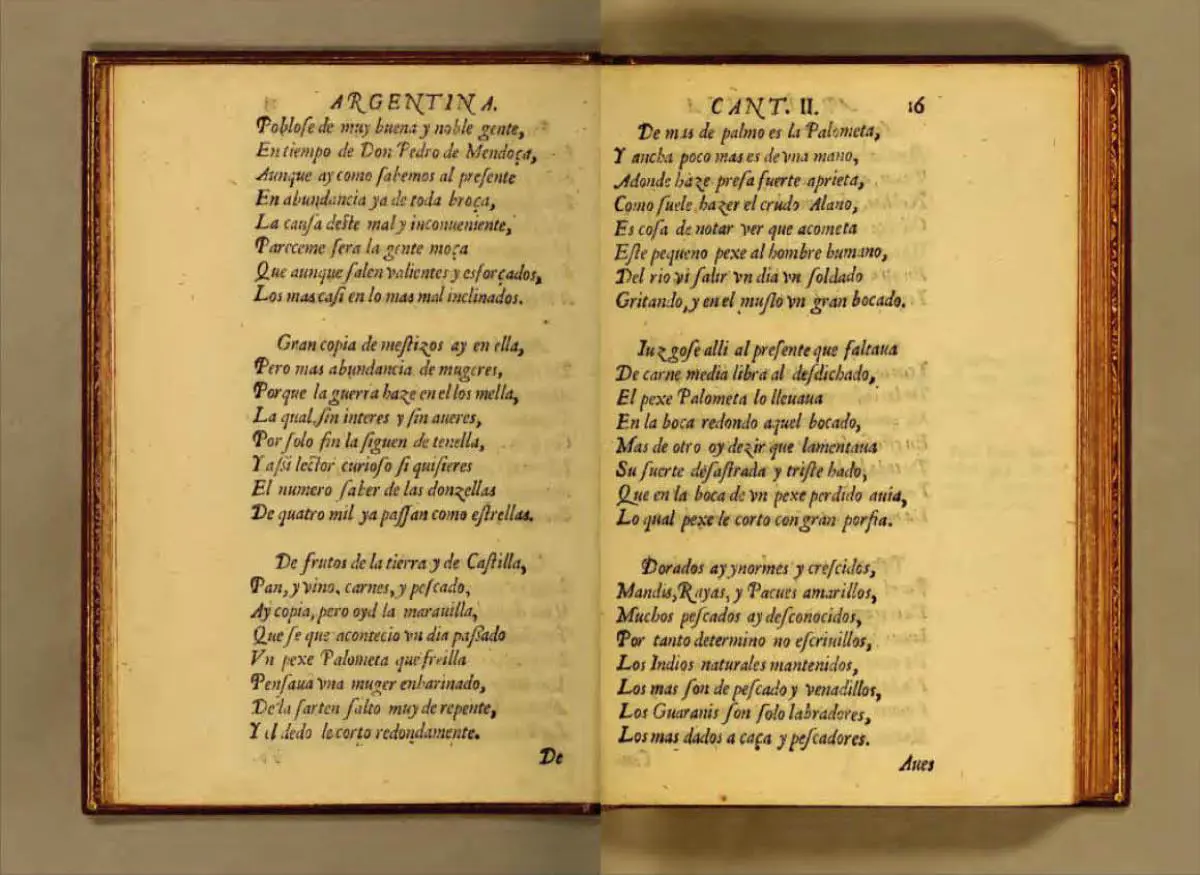 ARGENTINA.
Poblose de muy buena y noble gente,
En tiempo de Don Pedro de Mendoça,
Aunque ay como sabemos al presente
En abundancia ya de toda broça,
La causa deste mal y inconueniente,
Pareceme sera la gente moça
Que aunque salen valientes y esforçados,
Los mas casi en lo mas mal inclinados.
Gran copia de mestizos ay en ella,
Pero mas abundancia de mugeres,
Porque la guerra haze en ellos mella,
La qual, sin interes y sin aueres,
Por solo fin la siguen de tenella,
Y assi lector curioso si quisieres
El numero saber de las donzellas
De quatro mil ya passan como estrellas.
De frutos de la tierra y de Castilla,
Pan, y vino, carnes, y pescado,
Ay copia, pero oyd la marauilla,
Que se que acontecio vn dia passado
Vn pexe Palometa que freilla
Pensaua vna muger enharinado,
De la sarten salto muy de repente,
Y el dedo le corto redondamente.
De
CANT. II. 16
De mas de palmo es la Palometa,
Y ancha poco mas es de vna mano,
Adonde haze presa fuerte aprieta,
Como suele hazer el crudo Alano,
Es cosa de notar ver que acometa
Este pequeno pexe al hombre humano,
Del rio vi salir vn dia vn soldado
Gritando, y en el muslo vn gran bocado.
Iuzgose alli al presente que faltaua
De carne media libra al desdichado,
El pexe Palometa lo lleuaua
En la boca redondo aquel bocado,
Mas de otro oy dezir que lamentaua
Su suerte desastrada y triste hado,
Que en la boca de vn pexe perdido auia,
Lo qual pexe le corto con gran porfia.
Dorados ay ynormes y crescidos,
Mandis, Rayas, y Pacues amarillos,
Muchos pescados ay desconocidos,
Por tanto determino no escriuillos,
Los Indios naturales mantenidos,
Los mas son de pescado y venadillos,
Los Guaranis son solo labradores,
Los mas dados a caça y pescadores.
Aues